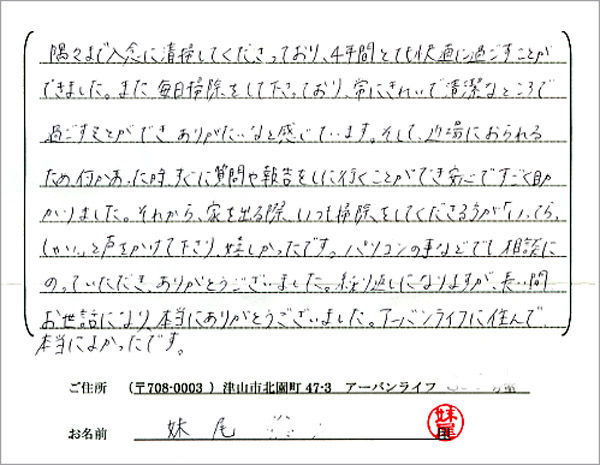 隅々まで入念に清掃してくださっており、4年間とても快適に過ごすことが
できました。また毎日掃除をして下さっており、常にきれいで清潔なところで
過ごすことができ、ありがたいなと感じています。そして、近場におられる
ため何かあった時、すぐに質問や報告をしに行くことができ安心ですごく助
かりました。それから、家を出る際、いつも掃除をしてくださる方が「いってら
しゃい」と声をかけて下さり、嬉しかったです。パソコンの事などでも相談に
のっていただき、ありがとうございました。繰り返しになりますが、長い間
お世話になり、本当にありがとうございました。アーバンライフに住んで
本当によかったです。
ご住所 (〒708-0003 ) 津山市北園町 47-3 アーバンライフ
お名前 妹尾
妹尾